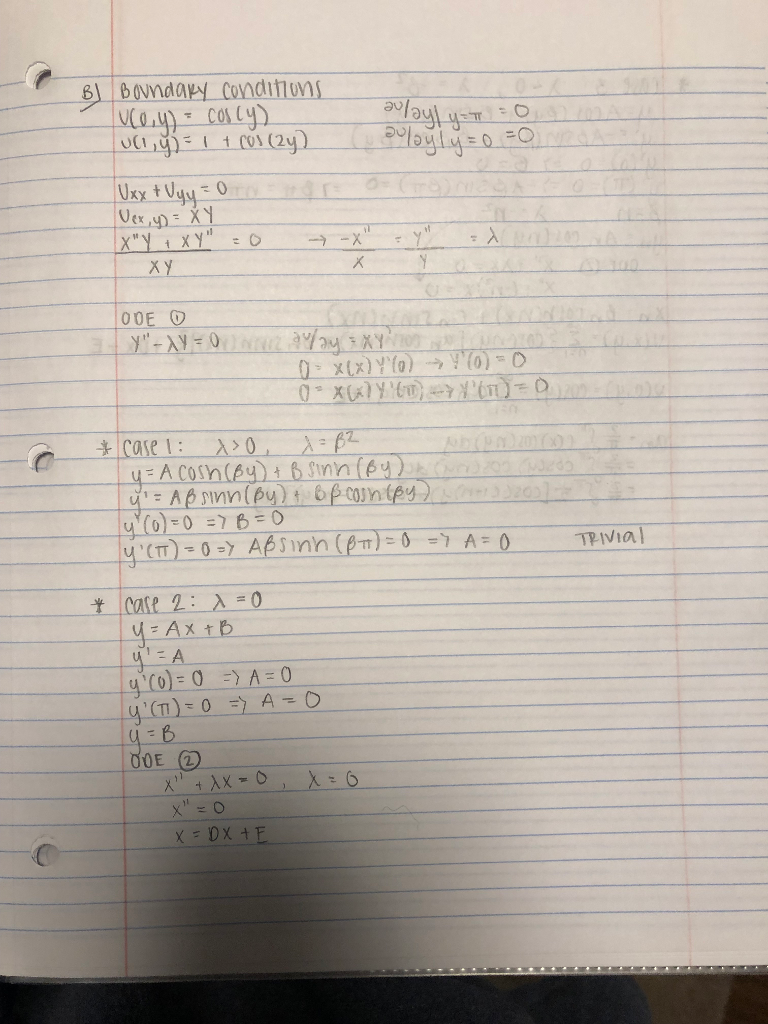 B) Boundary conditions
u(0,y) = cos(y)    ∂u/∂y|y=π = 0
u(1,y) = 1 + cos(2y)    ∂u/∂y|y=0 = 0
Uxx + Uyy = 0
U(x,y) = XY
X"Y + XY" / XY = 0 → -X"/X = Y"/Y = λ
ODE ①
Y" - λY = 0    ∂u/∂y = XY'
0 = X(x) Y'(0) → Y'(0) = 0
0 = X(x) Y'(π) → Y'(π) = 0
* case 1: λ>0, λ = β²
y = A cosh(βy) + B sinh(βy)
y' = Aβ sinh(βy) + Bβ cosh(βy)
y'(0) = 0 => B = 0
y'(π) = 0 => Aβ sinh(βπ) = 0 => A = 0    TRIVIAL
* case 2: λ = 0
y = Ax + B
y' = A
y'(0) = 0 => A = 0
y'(π) = 0 => A = 0
y = B
ODE ②
x" + λx = 0, λ = 0
x" = 0
x = Dx + E